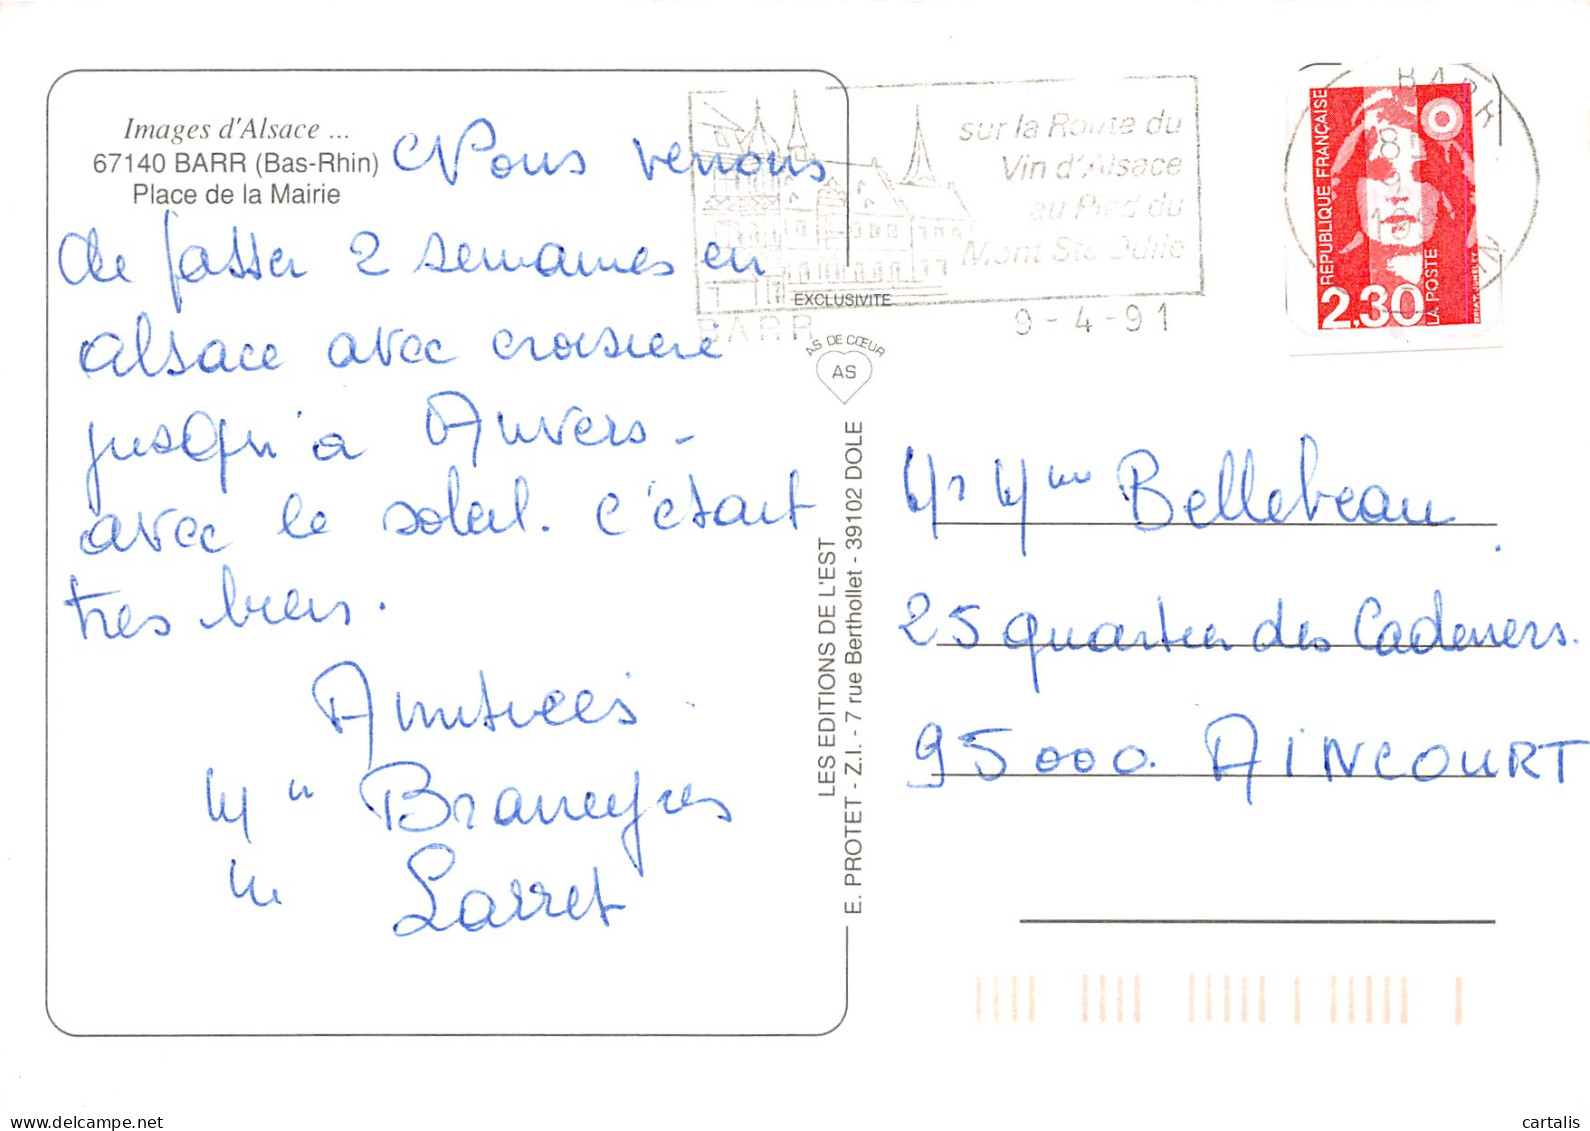 Images d'Alsace ...
67140 BARR (Bas-Rhin)
Place de la Mairie
Nous venons
de passer 2 semaines en
alsace avec croisière
jusqu'à Anvers -
avec le soleil. c'était
très bien.
Amitiées
Larret
sur la Route du
Vin d'Alsace
au Pied du
Mont Ste Odile
BARR
9-4-91
EXCLUSIVITE
AS DE CŒUR
AS
LES EDITIONS DE L'EST
E. PROTET - Z.I. - 7 rue Berthollet - 39102 DOLE
BARR
REPUBLIQUE FRANÇAISE
2,30
LA POSTE
Mr Mme Bellebeau
25 quartier des Cadeners.
95000. AINCOURT
delcampe.net
cartalis